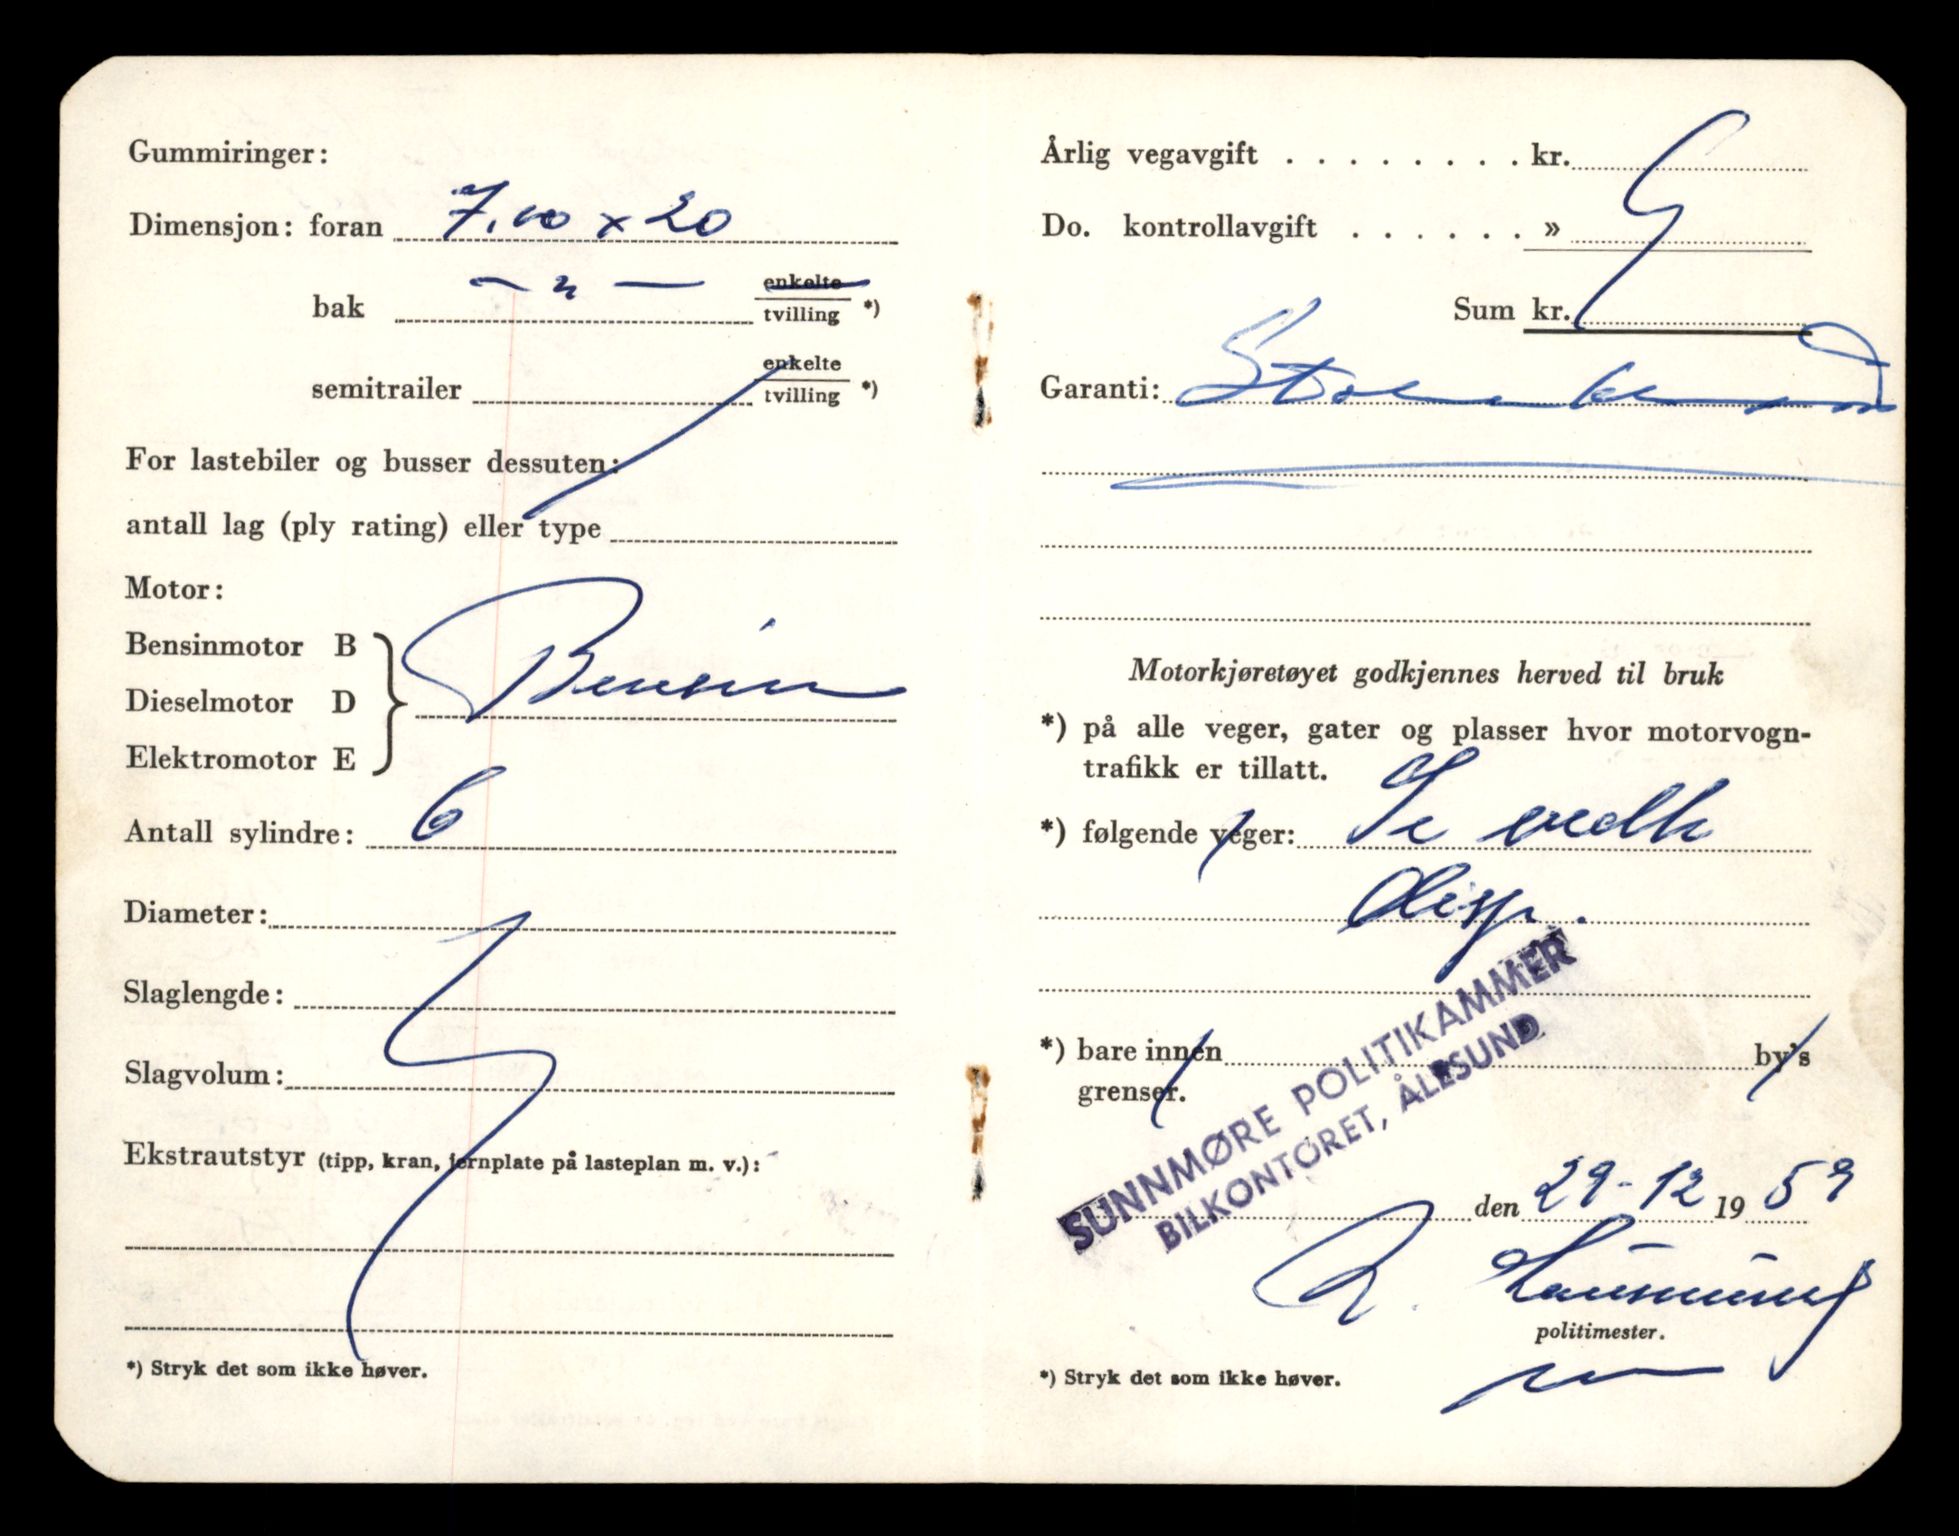 Gummiringer:
Dimensjon: foran 7,00 x 20
bak — " — enkelte
tvilling *)
semitrailer enkelte
tvilling *)
For lastebiler og busser dessuten:
antall lag (ply rating) eller type
Motor:
Bensinmotor B
Dieselmotor D
Bensin
Elektromotor E
Antall sylindre: 6
Diameter:
Slaglengde:
Slagvolum:
Ekstrautstyr (tipp, kran, jernplate på lasteplan m. v.):
*) Stryk det som ikke høver.
Årlig vegavgift . . . . . . . . kr.
Do. kontrollavgift . . . . . . »
Sum kr.
Garanti:
Motorkjøretøyet godkjennes herved til bruk
*) på alle veger, gater og plasser hvor motorvogn-
trafikk er tillatt.
*) følgende veger: Se vedh
disp.
*) bare innen by's
grenser.
SUNNMØRE POLITIKAMMER
BILKONTORET, ÅLESUND
den 29-12 1959
politimester.
*) Stryk det som ikke høver.